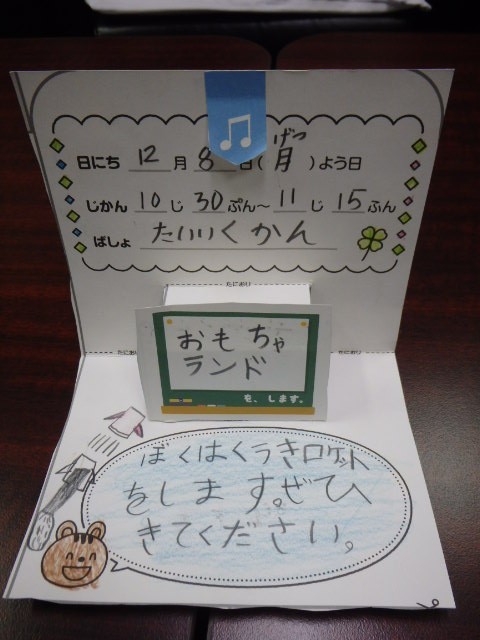 日にち 12 月 8 日( 月 )よう日
げつ
じかん 10 じ 30 ぷん~ 11 じ 15 ふん
ばしょ たいいくかん
たにおり
おもちゃ
ランド
を、します。
たにおり たにおり
ぼくはくうきロケット
をします。ぜひ
きてください。